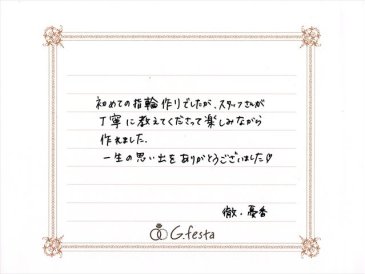 初めての指輪作りでしたが、スタッフさんが
丁寧に教えてくださって楽しみながら
作れました。
一生の思い出をありがとうございました♡
徹・優香
G.festa